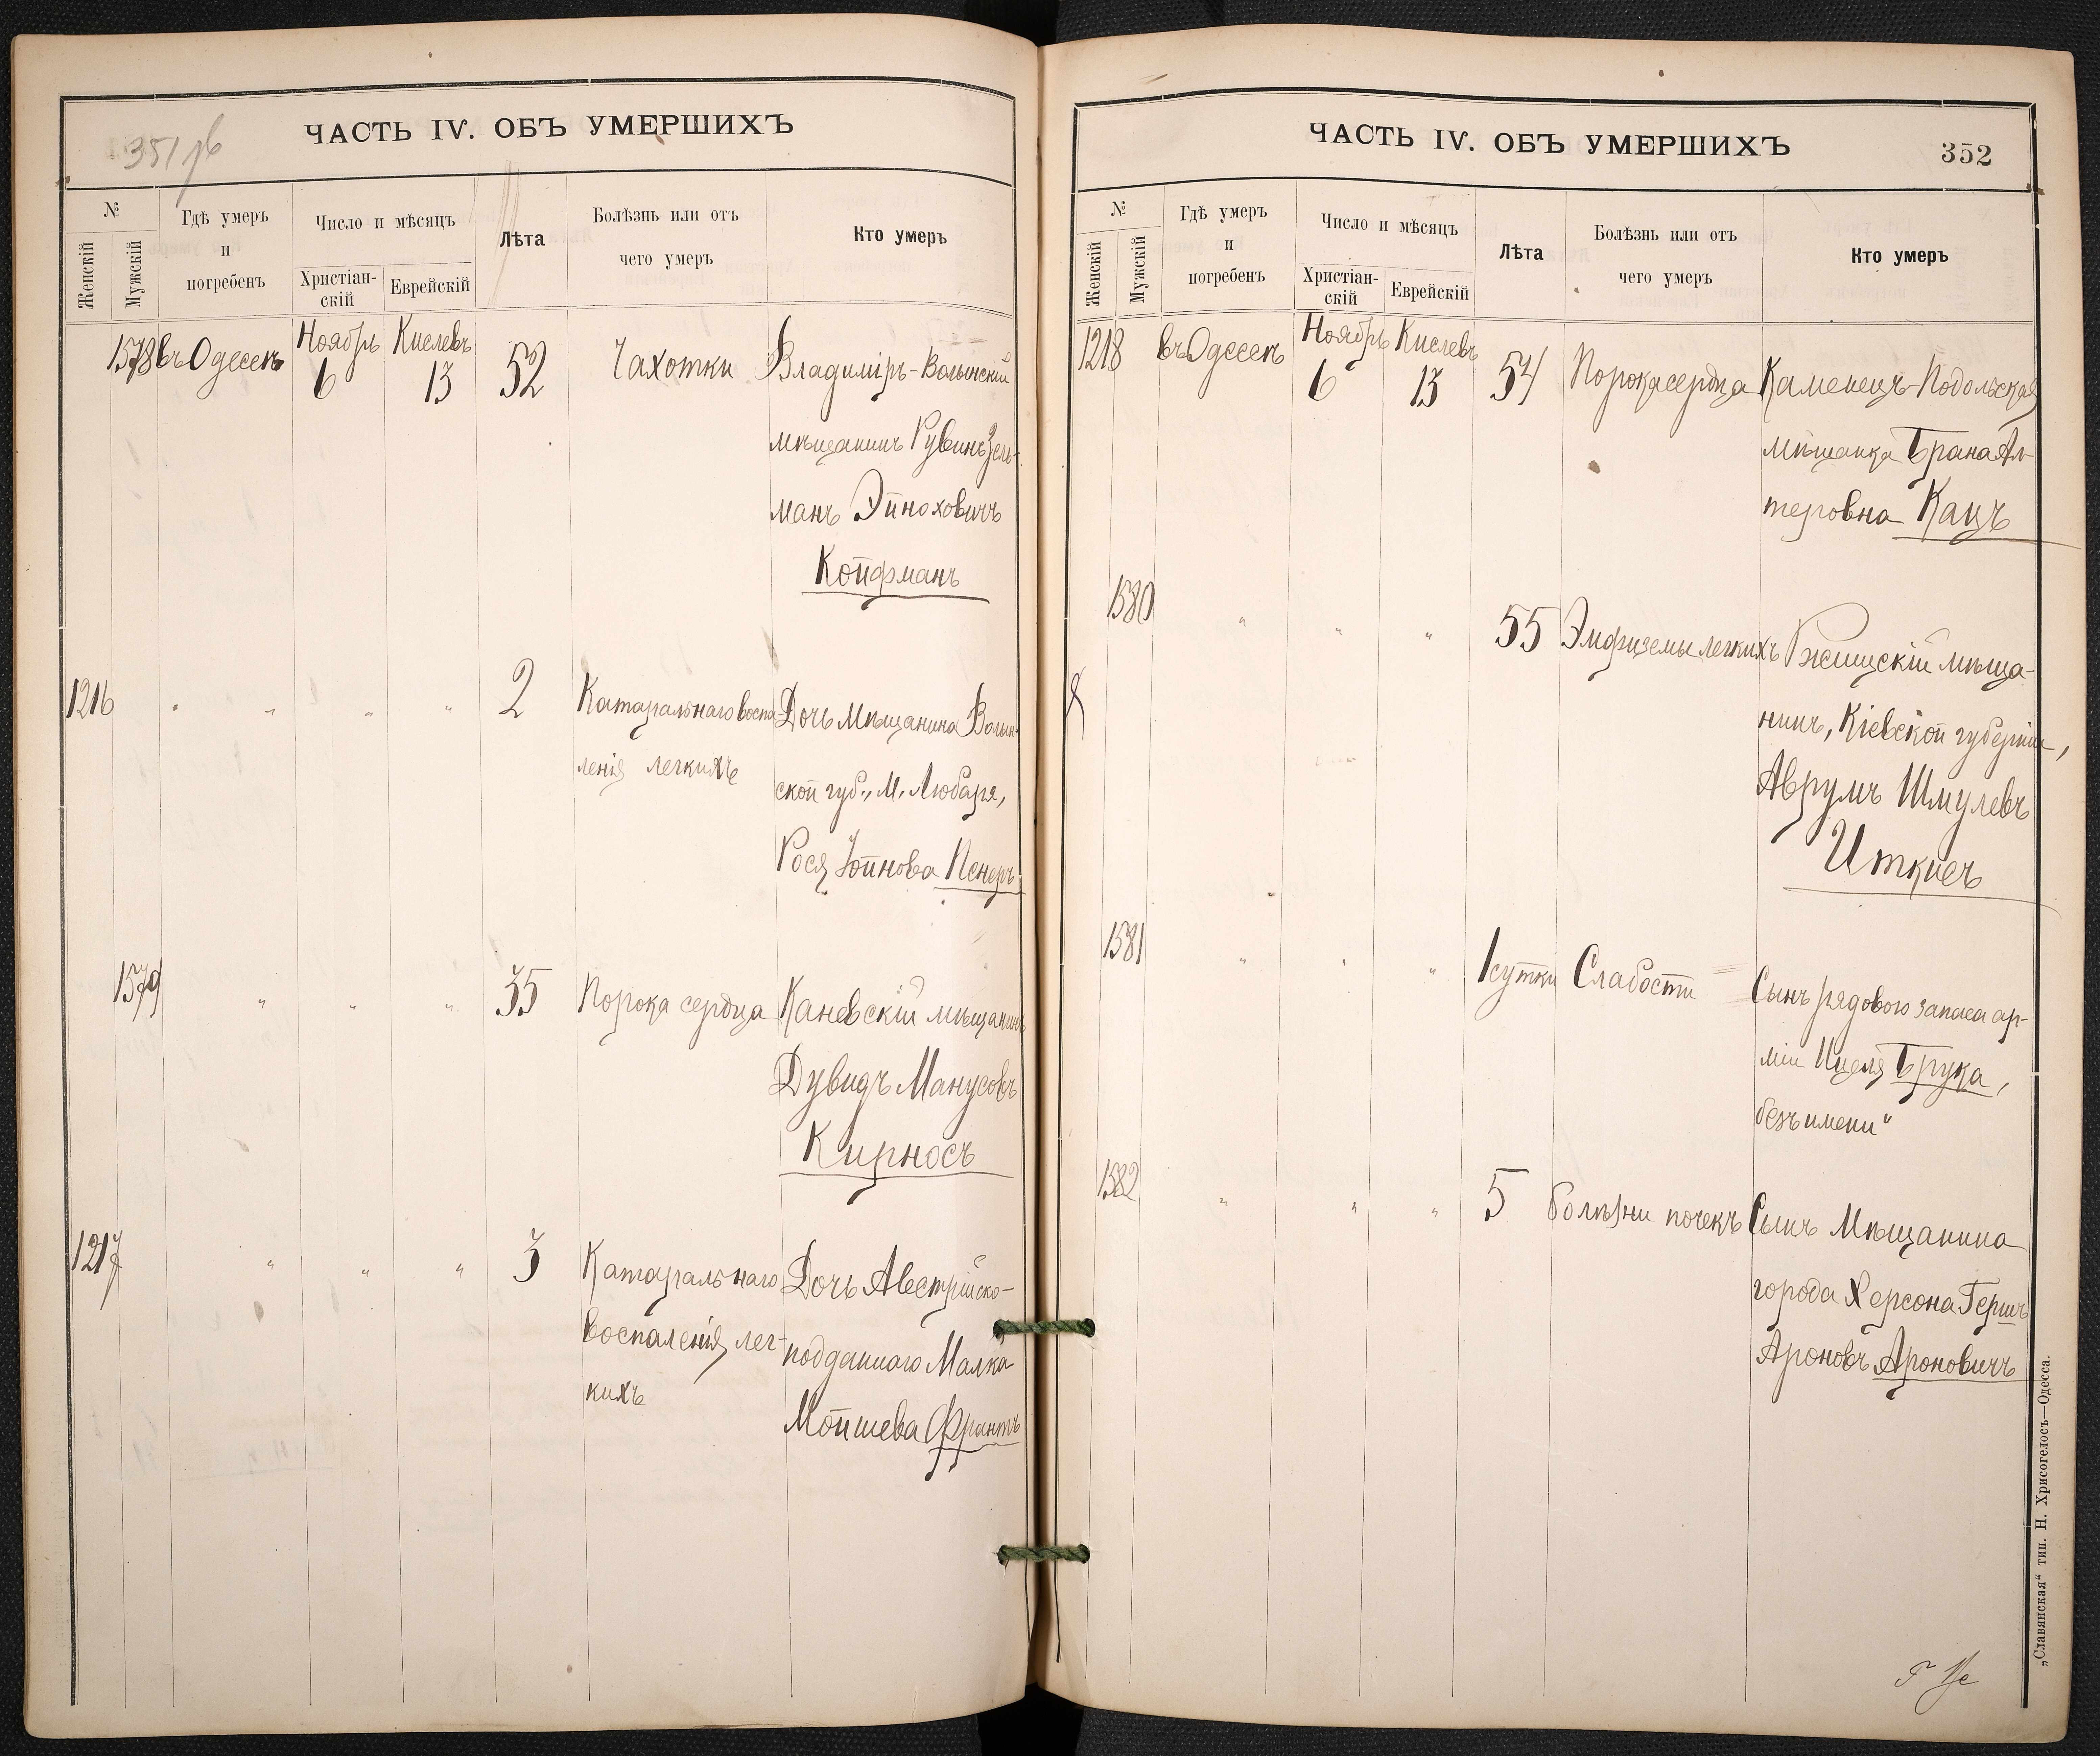 351 об
ЧАСТЬ IV. ОБЪ УМЕРШИХЪ
№
Женскій
Мужскій
Гдѣ умеръ
и
погребенъ
Число и мѣсяцъ
Христіан-
скій
Еврейскій
Лѣта
Болѣзнь или отъ
чего умеръ
Кто умеръ
1578 въ Одессѣ Ноябрь 6 Кислевъ 13 52 Чахотки Владиміръ-Волынскій
мѣщанинъ Рувинъ Зель-
манъ Эйноховичъ
Койфманъ
1216 " " " " 2 Катаральнаго воспа- Дочь мѣщанина Волын-
ленія легкихъ ской губ., м. Любаря,
Рося Юйнова Пенеръ
1579 " " " 35 Порока сердца Каневскій мѣщанинъ
Дувидъ Манусовъ
Кирносъ
1217 " " " 3 Катаральнаго Дочь Австрійско-
воспаленія лег- подданнаго Малка
кихъ Мойшева Франтъ
ЧАСТЬ IV. ОБЪ УМЕРШИХЪ
352
№
Женскій
Мужскій
Гдѣ умеръ
и
погребенъ
Число и мѣсяцъ
Христіан-
скій
Еврейскій
Лѣта
Болѣзнь или отъ
чего умеръ
Кто умеръ
1218 въ Одессѣ Ноябрь 6 Кислевъ 13 54 Порока сердца Каменецъ-Подольская
мѣщанка Брана Ал-
теровна Кацъ
1580 " " " 55 Эмфиземы легкихъ Ржищскій мѣща-
нинъ, Кіевской губерніи,
Аврумъ Шмулевъ
Иткисъ
1581 " " " 1 сутки Слабости Сынъ рядового запаса ар-
міи Ицеля Брука,
безъ имени"
1582 " " " 5 болѣзни почекъ Сынъ Мѣщанина
города Херсона Гершъ
Ароновъ Ароновичъ
„Славянская“ тип. Н. Хрисогелосъ—Одесса.